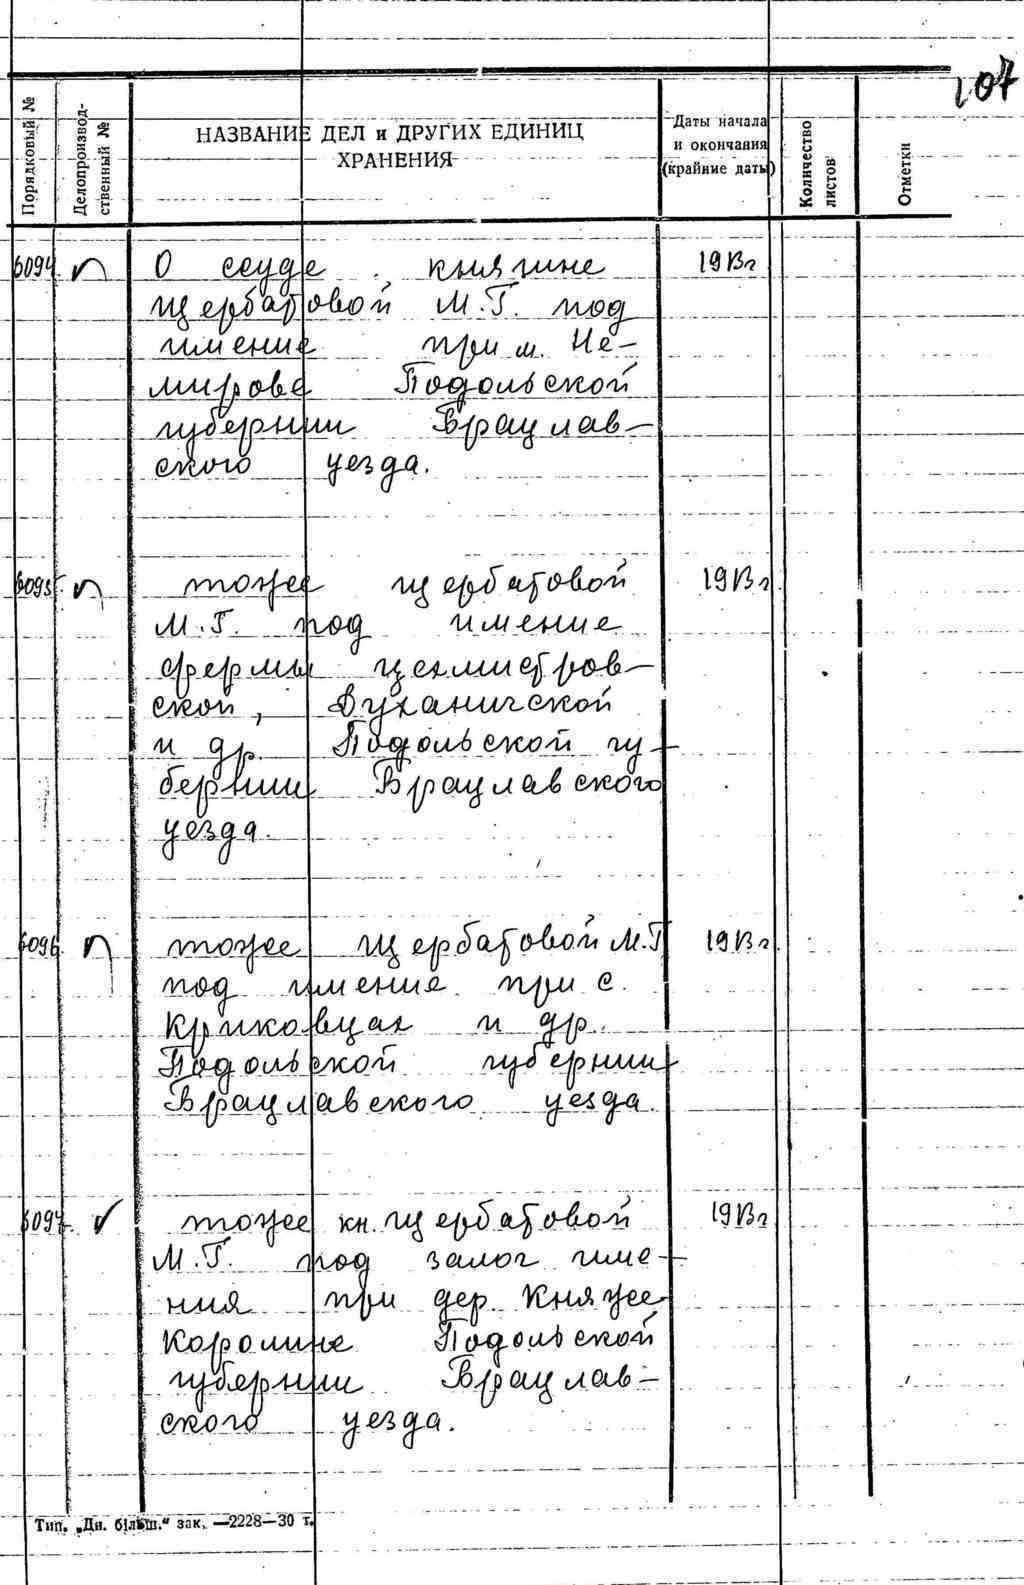 107
Порядковый №
Делопроизвод-
ственный №
НАЗВАНИЕ ДЕЛ и ДРУГИХ ЕДИНИЦ
ХРАНЕНИЯ
Даты начала
и окончания
(крайние даты)
Количество
листов
Отметки
6094 п О ссуде княгине 1913 г
Щербатовой М.Г. под
имение при м. Не-
мирове Подольской
губернии Брацлав-
ского уезда.
6095 п тоже Щербатовой 1913 г
М.Г. под имение
фермы Цехмистров-
ской, Духаничской
и др Подольской гу-
бернии Брацлавского
уезда.
6096 п тоже Щербатовой М.Г 1913 г
под имение при с.
Криковцах и др.
Подольской губернии
Брацлавского уезда
6097 ✓ тоже кн. Щербатовой 1913 г
М.Г. под залог име-
ния при дер. Княже
Королине Подольской
губернии Брацлав-
ского уезда.
Тип. „Дн. більш.“ зак. —2228—30 т.